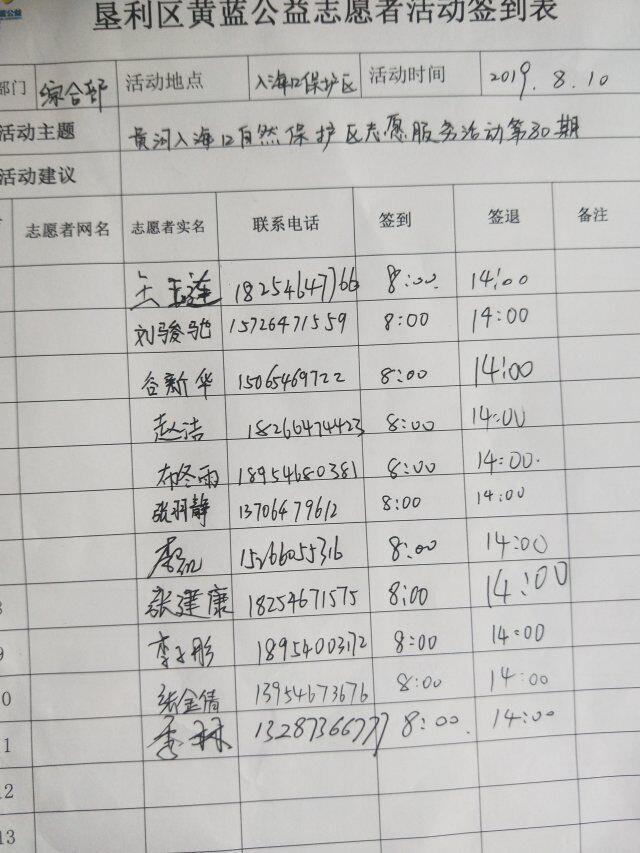 垦利区黄蓝公益志愿者活动签到表
部门 综合部 活动地点 入海口保护区 活动时间 2019.8.10
活动主题 黄河入海口自然保护区志愿服务活动第30期
活动建议
志愿者网名 志愿者实名 联系电话 签到 签退 备注
王玉莲 18254647766 8:00 14:00
刘骏驰 15726471559 8:00 14:00
谷新华 15065469722 8:00 14:00
赵洁 18266474423 8:00 14:00
布冬雨 18954680381 8:00 14:00
张羽静 13706479612 8:00 14:00
15266055316 8:00 14:00
张建康 18254671575 8:00 14:00
9 李子彤 18954003172 8:00 14:00
0 张金倩 13954673676 8:00 14:00
1 季林 13287366777 8:00 14:00
12
13